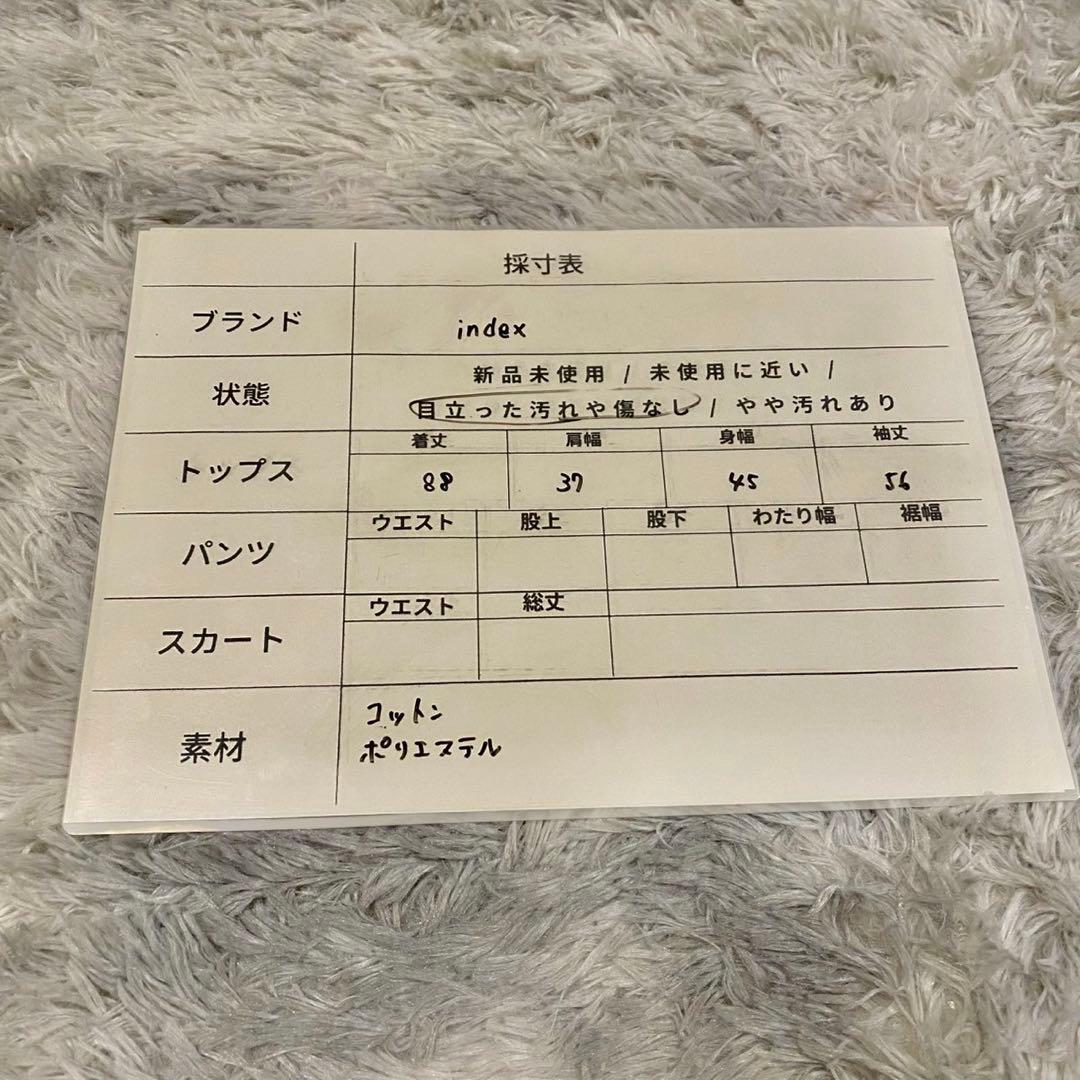 採寸表
ブランド index
状態 新品未使用 / 未使用に近い /
目立った汚れや傷なし / やや汚れあり
トップス 着丈 肩幅 身幅 袖丈
88 37 45 56
パンツ ウエスト 股上 股下 わたり幅 裾幅
スカート ウエスト 総丈
素材 コットン
ポリエステル